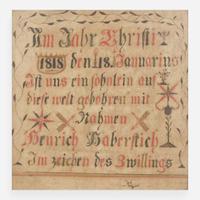 Im Jahr Christi
1818 den 18. Januarius
Ist uns ein sohnlein auf
diese welt gebohren mit
Nahmen
Henrich Haberstich
Im zeichen des Zwillings